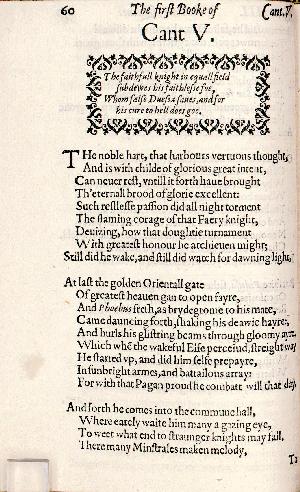 60 The first Booke of Cant. V.
Cant V.
The faithfull knight in equall field
subdewes his faithlesse foe,
Whom false Duessa saues, and for
his cure to hell does goe.
THe noble hart, that harbours vertuous thought,
And is with childe of glorious great intent,
Can neuer rest, vntill it forth haue brought
Th'eternall brood of glorie excellent:
Such restlesse passion did all night torment
The flaming corage of that Faery knight,
Deuizing, how that doughtie turnament
With greatest honour he atchieuen might;
Still did he wake, and still did watch for dawning light.
At last the golden Orientall gate
Of greatest heauen gan to open fayre,
And Phœbus fresh, as brydegrome to his mate,
Came dauncing forth, shaking his deawie hayre:
And hurls his glistring beams through gloomy ayre.
Which whē the wakeful Elfe perceiud, streight way
He started vp, and did him selfe prepayre,
In sunbright armes, and battailous array:
For with that Pagan proud he combatt will that day.
And forth he comes into the commune hall,
Where earely waite him many a gazing eye,
To weet what end to straunger knights may fall.
There many Minstrales maken melody,
To